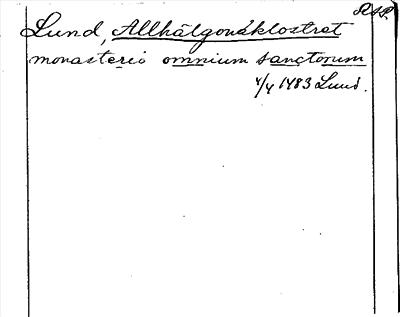 RAP.
Lund, Allhälgonaklostret
monasterio omnium sanctorum
4/4 1483 Lund.